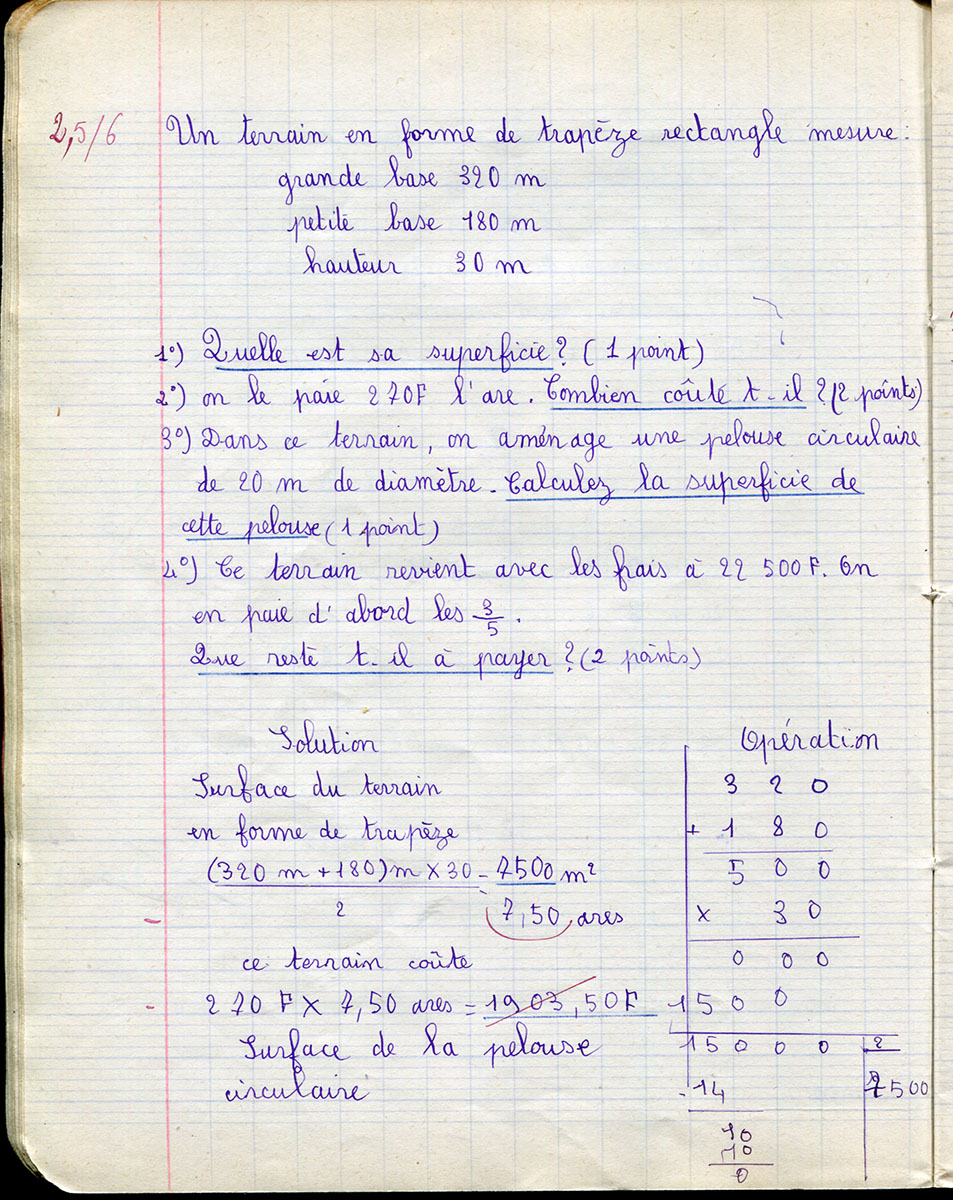 2,5/6
Un terrain en forme de trapèze rectangle mesure :
grande base 320 m
petite base 180 m
hauteur 30 m
1°) Quelle est sa superficie ? (1 point)
2°) on le paie 270F l'are. Combien coûte t-il ? (2 points)
3°) Dans ce terrain, on aménage une pelouse circulaire
de 20 m de diamètre. Calculez la superficie de
cette pelouse (1 point)
4°) Ce terrain revient avec les frais à 22 500 F. On
en paie d'abord les 3/5.
Que reste t-il à payer ? (2 points)
Solution
Surface du terrain
en forme de trapèze
(320 m + 180) m × 30 = 7500 m²
2
7,50 ares
ce terrain coûte
270 F × 7,50 ares = 1903,50F
Surface de la pelouse
circulaire
Opération
3 2 0
+ 1 8 0
5 0 0
× 3 0
0 0 0
1 5 0 0
1 5 0 0 0 2
- 14 7500
10
10
0